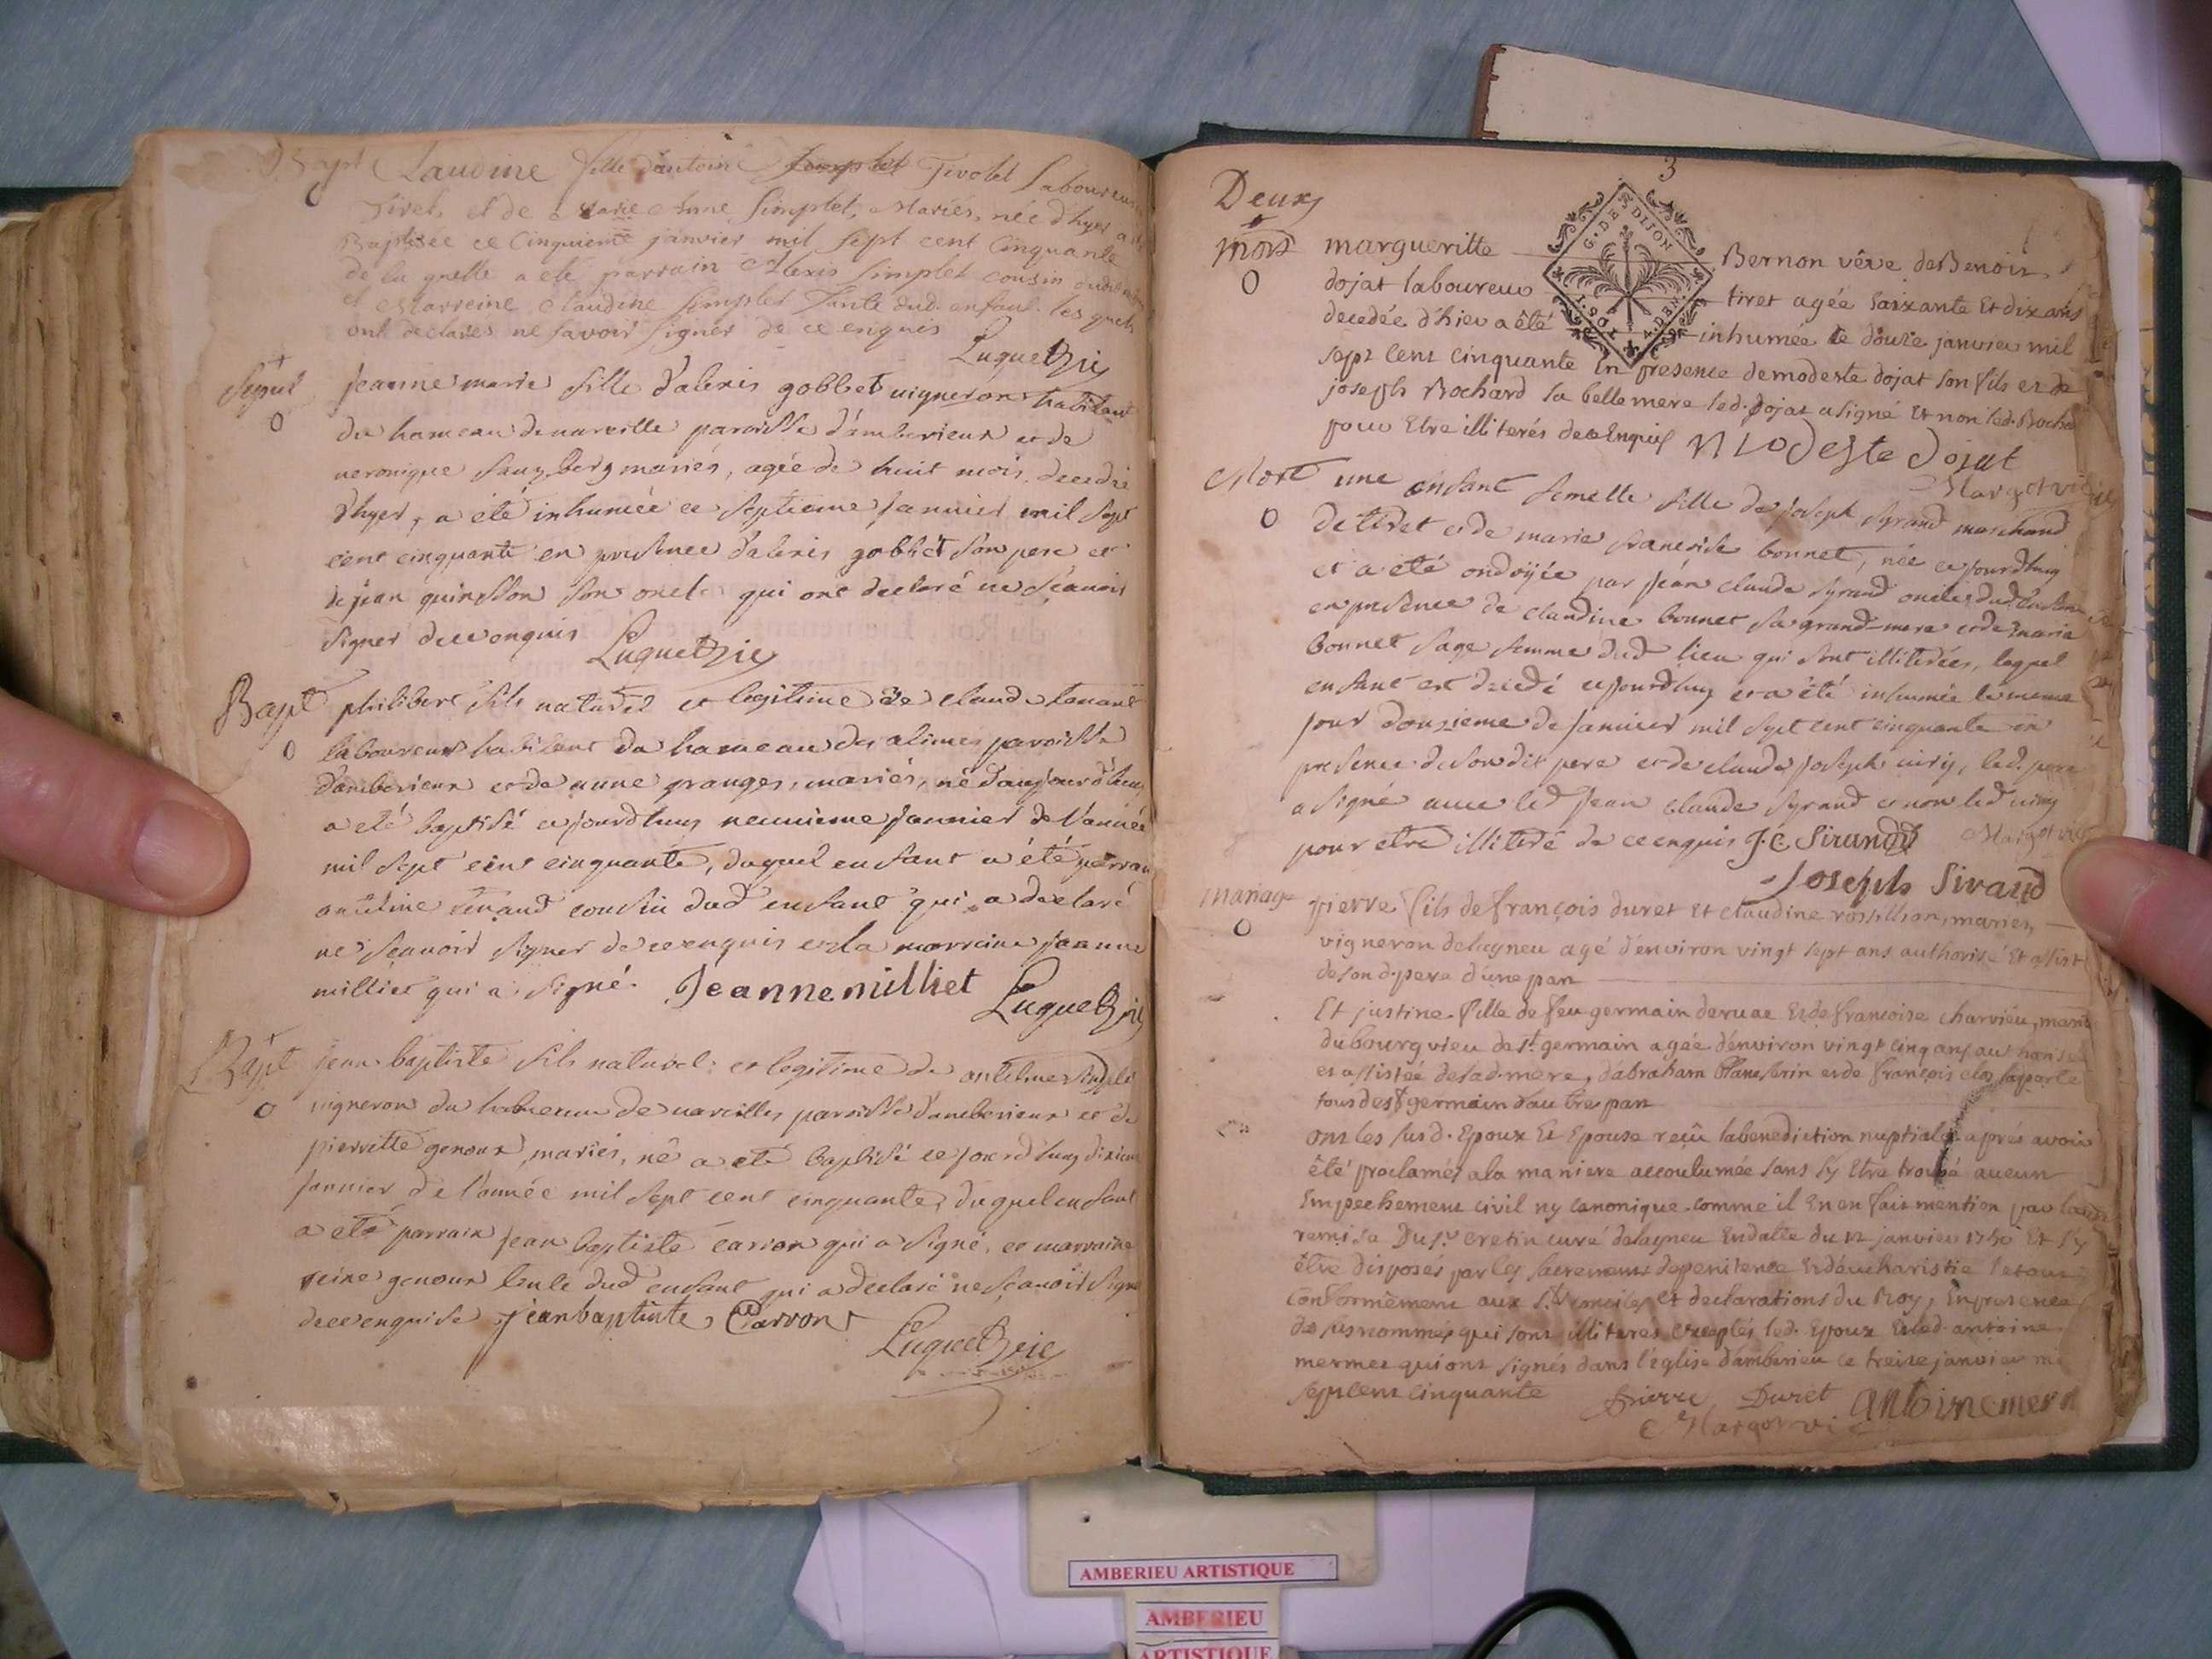 Bapt Claudine fille d'antoine Simplet Tivolet Laboureur
Tiret, et de Marie Anne Simplet, Mariés, née d'hyer a été
Baptisée ce Cinquieme janvier mil sept cent Cinquante
de la quelle a eté parrain Alexis Simplet cousin
et Marreine Claudine Simplet Tante dud. enfant. les quels
ont declarés ne savoir signer de ce enquis Luquet vic
Sepul jeanne marie fille d'alexis gobbet vigneron habitant
0
du hameau de vareille paroisse d'amberieux et de
veronique mariés, agée de huit mois, decedée
d'hyer, a été inhumée ce septieme janvier mil sept
cent cinquante en presence d'alexis gobbet son pere et
de jean quinson son oncle qui ont declaré ne sçavoir
signer de ce enquis Luquet vic
Bapt philibert fils naturel et legitime de claude tenant
0 laboureur habitant du hameau des alimes paroisse
d'amberieux et de anne granges, mariés, né d'aujourd'huy
a eté baptisé ce jourd'huy neuvieme jannier de l'année
mil sept cent cinquante, duquel enfant a été parrain
antelme tenand cousin dud enfant qui a declaré
ne sçavoir signer de ce enquis et la marraine jeanne
milliet qui a signé. Jeanne milliet Luquet vic
Bapt jean baptiste fils naturel et legitime de antelme
0 vigneron du hameau de vareilles paroisse d'amberieux et de
pierrette genoux, mariés, né a eté baptisé ce jourd'huy dixieme
jannier de l'année mil sept cent cinquante, duquel enfant
a eté parrain jean baptiste carron qui a signé, et marraine
reine genoux tente dud enfant qui a declaré ne sçavoir signer
de ce enquise jean baptiste Carron
Luquet vic
3
Deux
G. DE DIJON
mort margueritte Bernon vêve de Benoit
0 dojat laboureur tiret agée soixante Et dix ans
decedée d'hier a êté inhumée le douze janvier mil
sept cent cinquante En presence de modeste dojat son fils et de
joseph Bochard sa belle mere led. dojat a signé Et non led. Bochard
pour Etre illiterés de ce Enquis Modeste dojat
Margot vic
Mort une enfant femelle fille de joseph syrand marchand
0 de tiret et de marie francoise bonnet, née ce jourdhuy
et a eté ondoyée par jean claude syrand oncle dud enfant
en presence de claudine bonnet sa grand-mere et de marie
bonnet sage femme dud lieu qui sont illiterées, lequel
enfant est decedé ce jourdhuy et a été inhumée le meme
jour douzieme de janvier mil sept cent cinquante en
presence de son dit pere et de claude joseph viry, led. pere
a signé avec led jean claude syrand et non led viry
pour etre illiteré de ce enquis J. C. Sirand Margot vic
Joseph Sirand
mariage pierre fils de françois duret Et claudine rossillion, mariés,
0 vigneron de lagneu agé d'environ vingt sept ans authorisé Et assisté
de son d. pere d'une part
Et justine fille de feu germain deruaz Et de francoise charvieu, mariés
du bourg vieu de st. germain agée d'environ vingt cinq ans authorisée
et assistée de sad. mere, d'abraham et de françois
tous de st germain d'autre part
ont les susd. Epoux Et Epouse reçû la benediction nuptiale après avoir
êté proclamés a la maniere accoutumée sans s'y Etre trouvé aucun
Empechement civil ny canonique comme il En en fait mention par
remisa Du sr. cretin curé de lagneu En datte du 12 janvier 1750 Et s'y
être disposés par les sacrements de penitence Et d'eucharistie le tout
conformément aux sts conciles et declarations du Roy, En presence
des susnommés qui sont illiterés exceptés led. Epoux Et led. antoine
mermet qui ont signés dans l'église d'amberieu ce treize janvier mil
sept cent cinquante pierre Duret antoine merm
Margot vi
AMBERIEU ARTISTIQUE
AMBERIEU
ARTISTIQUE